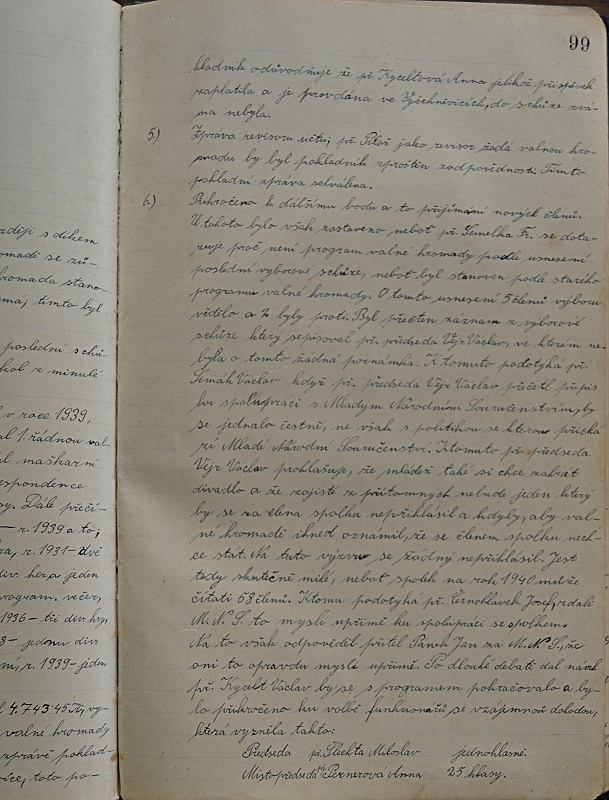 99
ději s díkem
omadě se zů-
romada stano-
maj tímto byl
poslední schů-
kol z minulé
v roce 1939,
al 1. řádnou val-
al maškarní
espondence
sy. Dále přečí-
– r. 1939 a to;
ra, r. 1931 – dvě
div. her, a jeden
program. večer,
1936 – tři div. hry,
8 – jednu div.
ní, r. 1939 – jeden
4.743·45 K, vy-
valné hromady
zprávě poklad-
toto po-
kladník odůvodňuje že př. Kyceltová Anna jelikož příspěvek
zaplatila a je provdána ve Vyšehněvicích, do schůze zvá-
na nebyla.
5) Zpráva revisorů účtů; př. Pitaš jako revisor žádá valnou hro-
madu by byl pokladník zproštěn zodpovědnosti. Tímto
pokladní zpráva schválena.
6.) Přikročeno k dalšímu bodu a to přijímání nových členů.
U tohoto bylo však zastaveno neboť př. Semelka Fr. se dota-
zuje proč není program valné hromady podle usnesení
poslední výborové schůze, neboť byl stanoven podle starého
programu valné hromady. O tomto usnesení 5 členů výboru
vědělo a 2 byly proti. Byl přečten záznam z výborové
schůze který sepisoval př. předseda Vejr Václav, ve kterém ne-
byla o tomto žádná poznámka. K tomuto podotýká př.
Šimák Václav když př. předseda Vejr Václav přečetl přípis
ku spolupráci s Mladým Národním Souručenstvím, by
se jednalo čestně, ne však s politikou se kterou přichá-
zí Mladé Národní Souručenství. K tomuto př. předseda
Vejr Václav prohlašuje, že mládež také si chce zahrát
divadlo a že zajisté z přítomných nebude jeden který
by se za člena spolku nepřihlásil a kdyby, aby val-
né hromadě ihned oznámil, že se členem spolku nech-
ce stát. Na tuto výzvu se žádný nepřihlásil. Jest
tedy skutečně milé, neboť spolek na rok 1940 může
čítati 68 členů. K tomu podotýká př. Černohlávek Josef, zdali
M. N. S. to myslí upřímě ku spolupráci se spolkem.
Na to však odpověděl přítel Pánek Jan za M. N. S., že
oni to opravdu myslí upřímě. Po dlouhé debatě dal návrh
př. Kycelt Václav by se s programem pokračovalo a by-
lo přikročeno ku volbě funkcionářů se vzájemnou dohodou,
která vyzněla takto:
Předseda př. Šlechta Miloslav jednohlasně.
Místopředseda př. Pernerová Anna 25 hlasy.